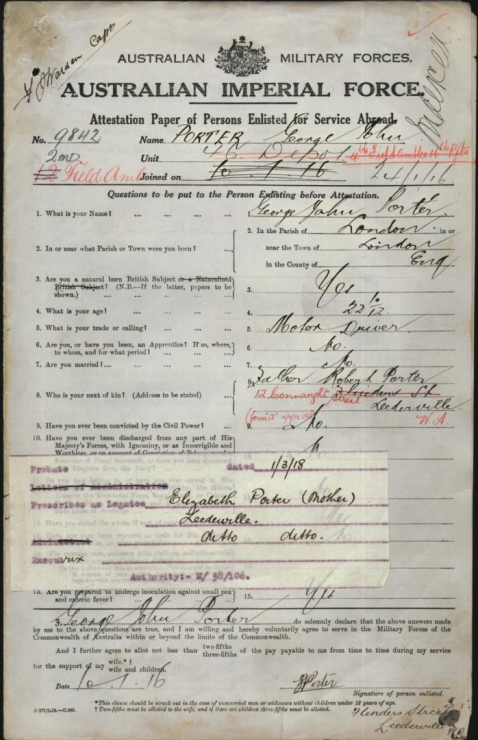 F J Warden Capt
AUSTRALIAN MILITARY FORCES.
AUSTRALIAN IMPERIAL FORCE.
Attestation Paper of Persons Enlisted for Service Abroad.
No. 9842 Name PORTER George John
2nd Unit Depot
12 Field Amb Joined on 10.1.16 24/1/16
Questions to be put to the Person Enlisting before Attestation.
1. What is your Name? ... ... ... George John Porter
2. In or near what Parish or Town were you born? ... 2. In the Parish of London in or
near the Town of London
in the County of Eng
3. Are you a natural born British Subject or a Naturalized
British Subject? (N.B.—If the latter, papers to be
shown.) ... ... 3. Yes
4. What is your age? ... ... ... 4. 22
5. What is your trade or calling? ... ... ... 5. Motor Driver
6. Are you, or have you been, an Apprentice? If so, where,
to whom, and for what period? ... ... 6. No.
7. Are you married? ... ... ... 7. No.
8. Who is your next of kin? (Address to be stated) ... 8. Father Robert Porter
12 Connaught Street Flinders St
Leederville
W.A
9. Have you ever been convicted by the Civil Power? ... 9. No.
10. Have you ever been discharged from any part of His
Majesty's Forces, with Ignominy, or as Incorrigible and
Probate dated 1/3/18
Letters of Administration
Prescribes as Legatee Elizabeth Porter (Mother)
Leederville.
ditto ditto.
Executrix
Authority:- M/ 58/106.
15. Are you prepared to undergo inoculation against small pox
and enteric fever? ... 15. Yes
I, George John Porter do solemnly declare that the above answers made
by me to the above questions are true, and I am willing and hereby voluntarily agree to serve in the Military Forces of the
Commonwealth of Australia within or beyond the limits of the Commonwealth.
And I further agree to allot not less than two-fifths three-fifths of the pay payable to me from time to time during my service
for the support of my wife.*† wife and children.
Date 10.1.16 GJPorter
Signature of person enlisted.
*This clause should be struck out in the case of unmarried men or widowers without children under 18 years of age.
† Two-fifths must be allotted to the wife, and if there are children three-fifths must be allotted.
Flinders Street
Leederville